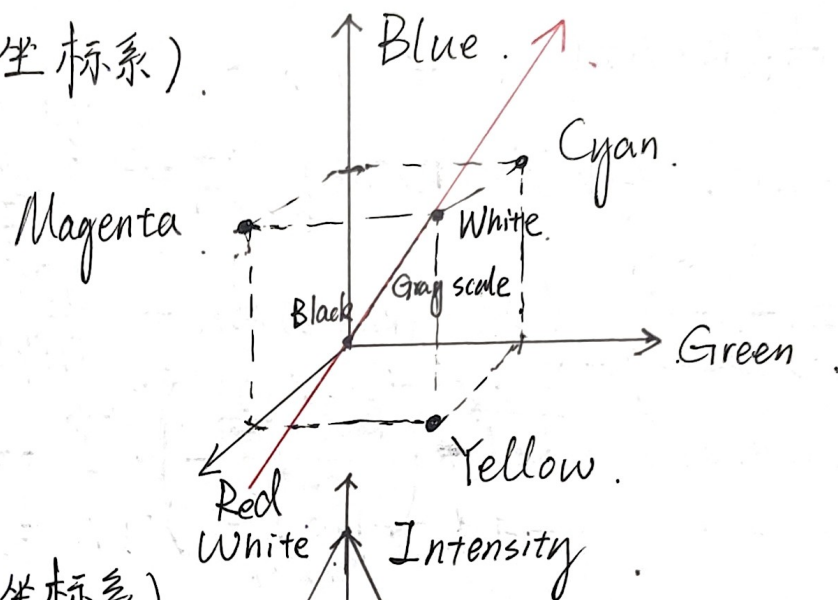 坐标系).
Blue.
Cyan.
Magenta.
White.
Gray scale
Black
Green.
Yellow.
Red
White
Intensity.
坐标系)